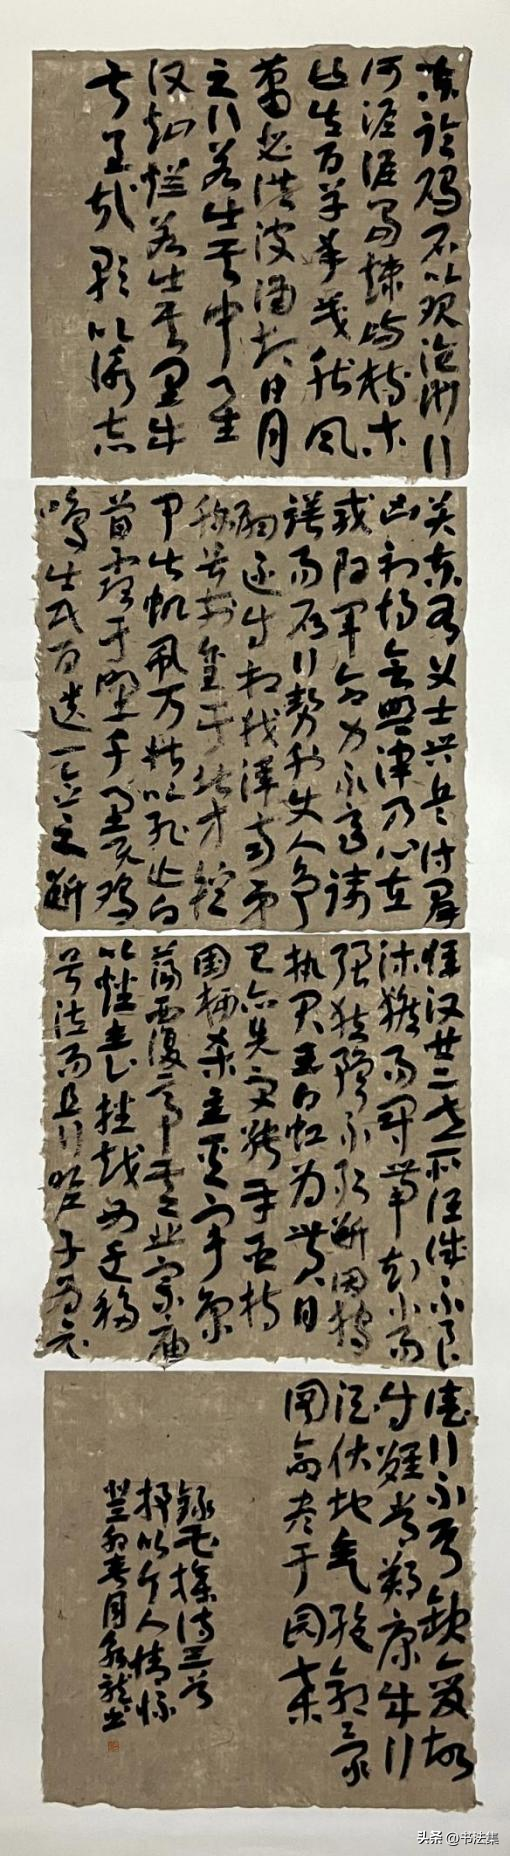 东临碣石以观沧海水
何澹澹山岛竦峙树木
丛生百草丰茂秋风
萧瑟洪波涌起日月
之行若出其中星
汉灿烂若出其里幸
甚至哉歌以咏志
关东有义士兴兵讨群
凶初期会盟津乃心在
咸阳军合力不齐踌
躇而雁行势利使人争
嗣还自相戕淮南弟
称号刻玺于北方铠
甲生虮虱万姓以死亡白
骨露于野千里无鸡
鸣生民百遗一念之断
惟汉廿二世所任诚不良
沐猴而冠带知小而
强犹豫不敢断因狩
执君王白虹为贯日
己亦先受殃贼臣持
国柄杀主灭宇京
荡覆帝基业宗庙
以燔丧播越西迁移
号泣而且行子为哀
德行不亏缺变故
自难常郑康成行
酒伏地气绝郭景
图命尽于园桑
录曹操诗三首
抒以个人情怀
癸卯春月龙书
头条 @书法集